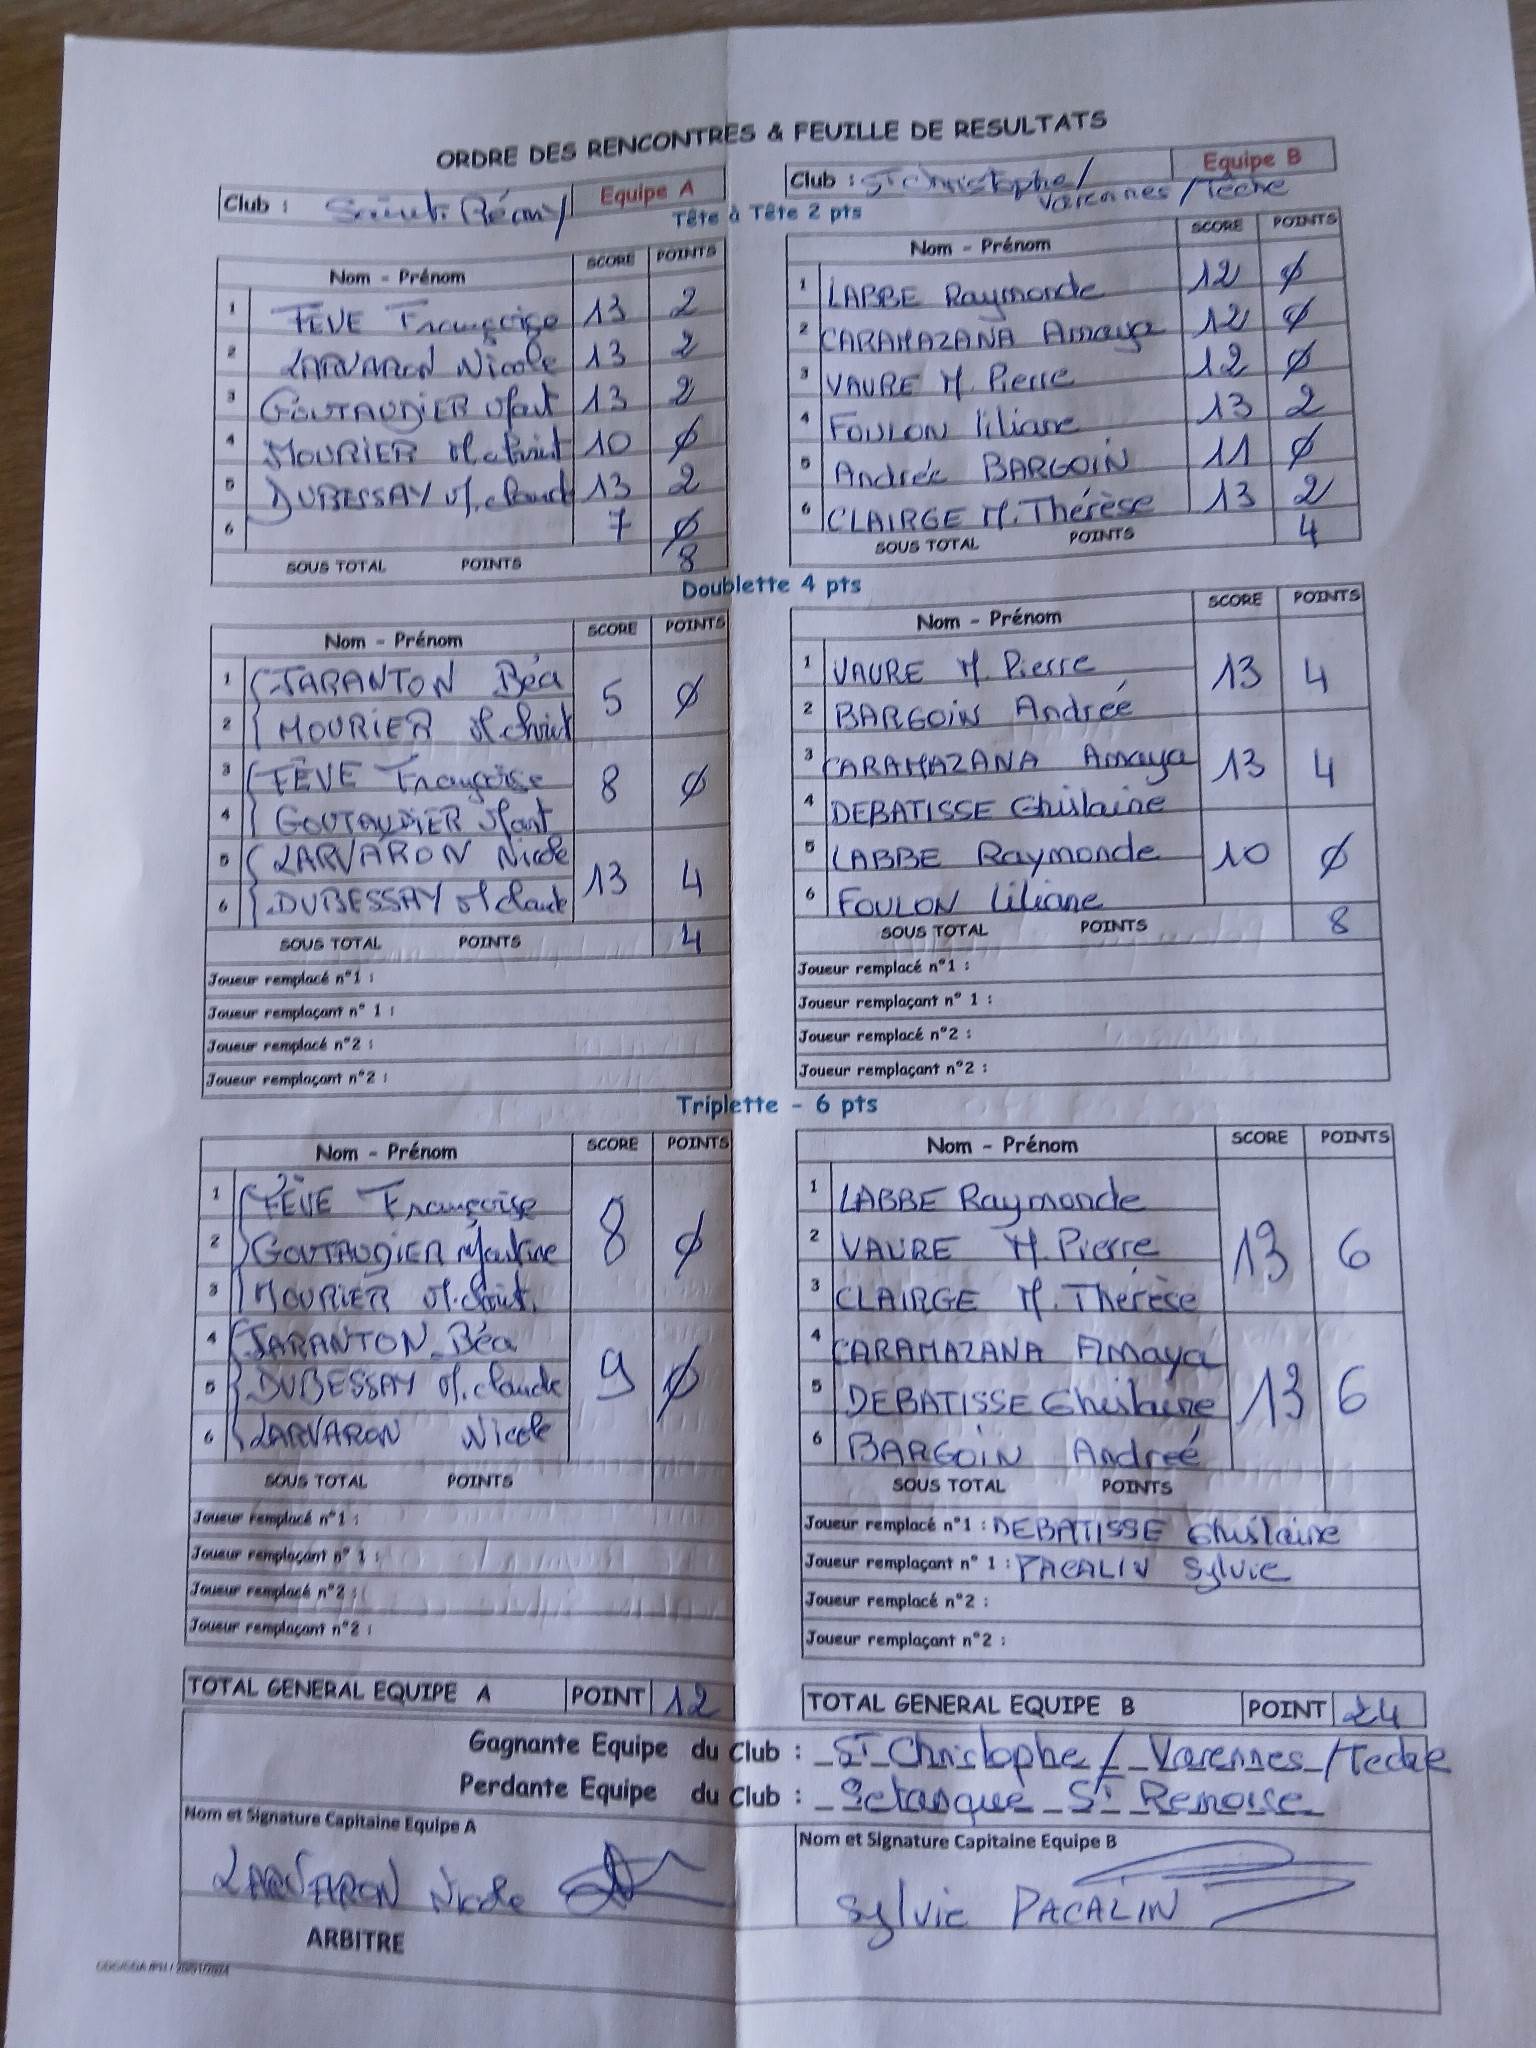 ORDRE DES RENCONTRES & FEUILLE DE RESULTATS
Club : Saint Rémy Equipe A
Club : St Christophe / Varennes / Tèche Equipe B
Tête à Tête 2 pts
Nom - Prénom SCORE POINTS
1 FEVE Françoise 13 2
2 LARVARON Nicole 13 2
3 GOUTAUDIER Mart 13 2
4 MOURIER M. Christ 10 Ø
5 DUBESSAY M. Claud 13 2
6 7 Ø
SOUS TOTAL POINTS 8
Nom - Prénom SCORE POINTS
1 LABBE Raymonde 12 Ø
2 CARAMAZANA Amaya 12 Ø
3 VAURE M. Pierre 12 Ø
4 FOULON liliane 13 2
5 Andrée BARGOIN 11 Ø
6 CLAIRGE M. Thérèse 13 2
SOUS TOTAL POINTS 4
Doublette 4 pts
Nom - Prénom SCORE POINTS
1 JARANTON Béa 5 Ø
2 MOURIER M. Christ
3 FÈVE Françoise 8 Ø
4 GOUTAUDIER Mart
5 LARVARON Nicole 13 4
6 DUBESSAY M Claude
SOUS TOTAL POINTS 4
Joueur remplacé n°1 :
Joueur remplaçant n° 1 :
Joueur remplacé n°2 :
Joueur remplaçant n°2 :
Nom - Prénom SCORE POINTS
1 VAURE M. Pierre 13 4
2 BARGOIN Andreé
3 CARAMAZANA Amaya 13 4
4 DEBATISSE Ghislaine
5 LABBE Raymonde 10 Ø
6 FOULON liliane
SOUS TOTAL POINTS 8
Joueur remplacé n°1 :
Joueur remplaçant n° 1 :
Joueur remplacé n°2 :
Joueur remplaçant n°2 :
Triplette - 6 pts
Nom - Prénom SCORE POINTS
1 FÈVE Françoise 8 Ø
2 GOUTAUDIER Martine
3 MOURIER M. Christ.
4 JARANTON Béa 9 Ø
5 DUBESSAY M. Claude
6 LARVARON Nicole
SOUS TOTAL POINTS
Joueur remplacé n°1 :
Joueur remplaçant n° 1 :
Joueur remplacé n°2 :
Joueur remplaçant n°2 :
Nom - Prénom SCORE POINTS
1 LABBE Raymonde 13 6
2 VAURE M. Pierre
3 CLAIRGE M. Thérèse
4 CARAMAZANA Amaya 13 6
5 DEBATISSE Ghislaine
6 BARGOIN Andreé
SOUS TOTAL POINTS
Joueur remplacé n°1 : DEBATISSE Ghislaine
Joueur remplaçant n° 1 : PACALIN Sylvie
Joueur remplacé n°2 :
Joueur remplaçant n°2 :
TOTAL GENERAL EQUIPE A POINT 12
TOTAL GENERAL EQUIPE B POINT 24
Gagnante Equipe du Club : St Christophe / Varennes / Teche
Perdante Equipe du Club : Petanque St Remoise
Nom et Signature Capitaine Equipe A
LARVARON Nicole
Nom et Signature Capitaine Equipe B
Sylvie PACALIN
ARBITRE